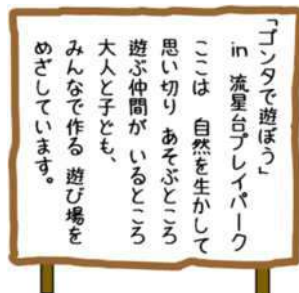 「ゴンタで遊ぼう」
in 流星台プレイパーク
ここは 自然を生かして
思い切り あそぶところ
遊ぶ仲間が いるところ
大人と子ども、
みんなで作る 遊び場を
めざしています。